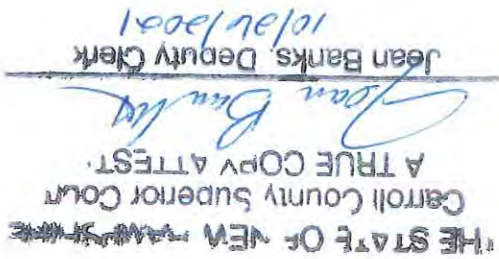 THE STATE OF NEW HAMPSHIRE
Carroll County Superior Court
A TRUE COPY ATTEST:
Jean Banks
Jean Banks, Deputy Clerk
10/26/2021